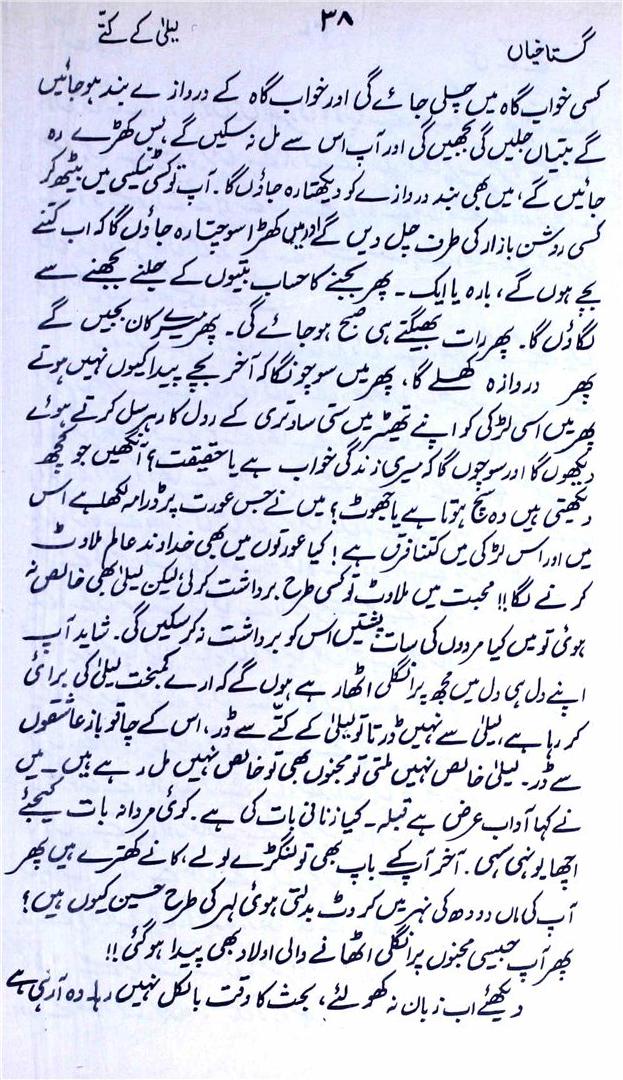 گستاخیاں ۳۸ لیلیٰ کے کتّے
کسی خواب گاہ میں چلی جائے گی اور خواب گاہ کے دروازے بند ہو جائیں
گے بتیاں جلیں گی بجھیں گی اور آپ اس سے مل نہ سکیں گے، بس کھڑے رہ
جائیں گے، میں بھی بند دروازے کو دیکھتا رہ جاؤں گا۔ آپ تو کسی ٹیکسی میں بیٹھ کر
کسی روشن بازار کی طرف چل دیں گے اور میں کھڑا سوچتا رہ جاؤں گا کہ اب کتنے
بجے ہوں گے، بارہ یا ایک۔ پھر بجنے کا حساب بتیوں کے جلنے بجھنے سے
لگاؤں گا۔ پھر رات بھیگتے ہی صبح ہو جائے گی۔ پھر میرے کان بجیں گے
پھر دروازہ کھلے گا، پھر میں سوچونگا کہ آخر بچے پیدا کیوں نہیں ہوتے
پھر میں اسی لڑکی کو اپنے تھیٹر میں ستی ساوتری کے رول کا رہرسل کرتے ہوئے
دیکھوں گا اور سوچوں گا کہ میری زندگی خواب ہے یا حقیقت؟ آنکھیں جو کچھ
دیکھتی ہیں وہ سچ ہوتا ہے یا جھوٹ؟ میں نے جس عورت پر ڈرامہ لکھا ہے اس
میں اور اس لڑکی میں کتنا فرق ہے! کیا عورتوں میں بھی خداوند عالم ملاوٹ
کرنے لگا!! محبت میں ملاوٹ تو کسی طرح برداشت کر لی، لیکن لیلیٰ بھی خالص نہ
ہوئی تو میں کیا مردوں کی سات پشتیں اس کو برداشت نہ کر سکیں گی۔ شاید آپ
اپنے دل ہی دل میں مجھ پر انگلی اٹھا رہے ہوں گے کہ ارے کمبخت لیلیٰ کی برائی
کر رہا ہے، لیلیٰ سے نہیں ڈرتا تو لیلیٰ کے کتّے سے ڈر، اس کے چاقو باز عاشقوں
سے ڈر۔ لیلیٰ خالص نہیں ملتی تو مجنوں بھی تو خالص نہیں مل رہے ہیں۔ میں
نے کہا آداب عرض ہے قبلہ۔ کیا زنانی بات کی ہے۔ کوئی مردانہ بات کیجئے
اچھا یونہی سہی۔ آخر آپ کے باپ بھی تو لنگڑے لولے، کانے کھترے ہیں پھر
آپ کی ماں دودھ کی نہر میں کروٹ بدلتی ہوئی لہر کی طرح حسین کیوں ہیں؟
پھر آپ جیسی مجنوں پر انگلی اٹھانے والی اولاد بھی پیدا ہو گئی!!
دیکھئے اب زبان نہ کھولئے، بحث کا وقت بالکل نہیں رہا۔ وہ آ رہی ہے